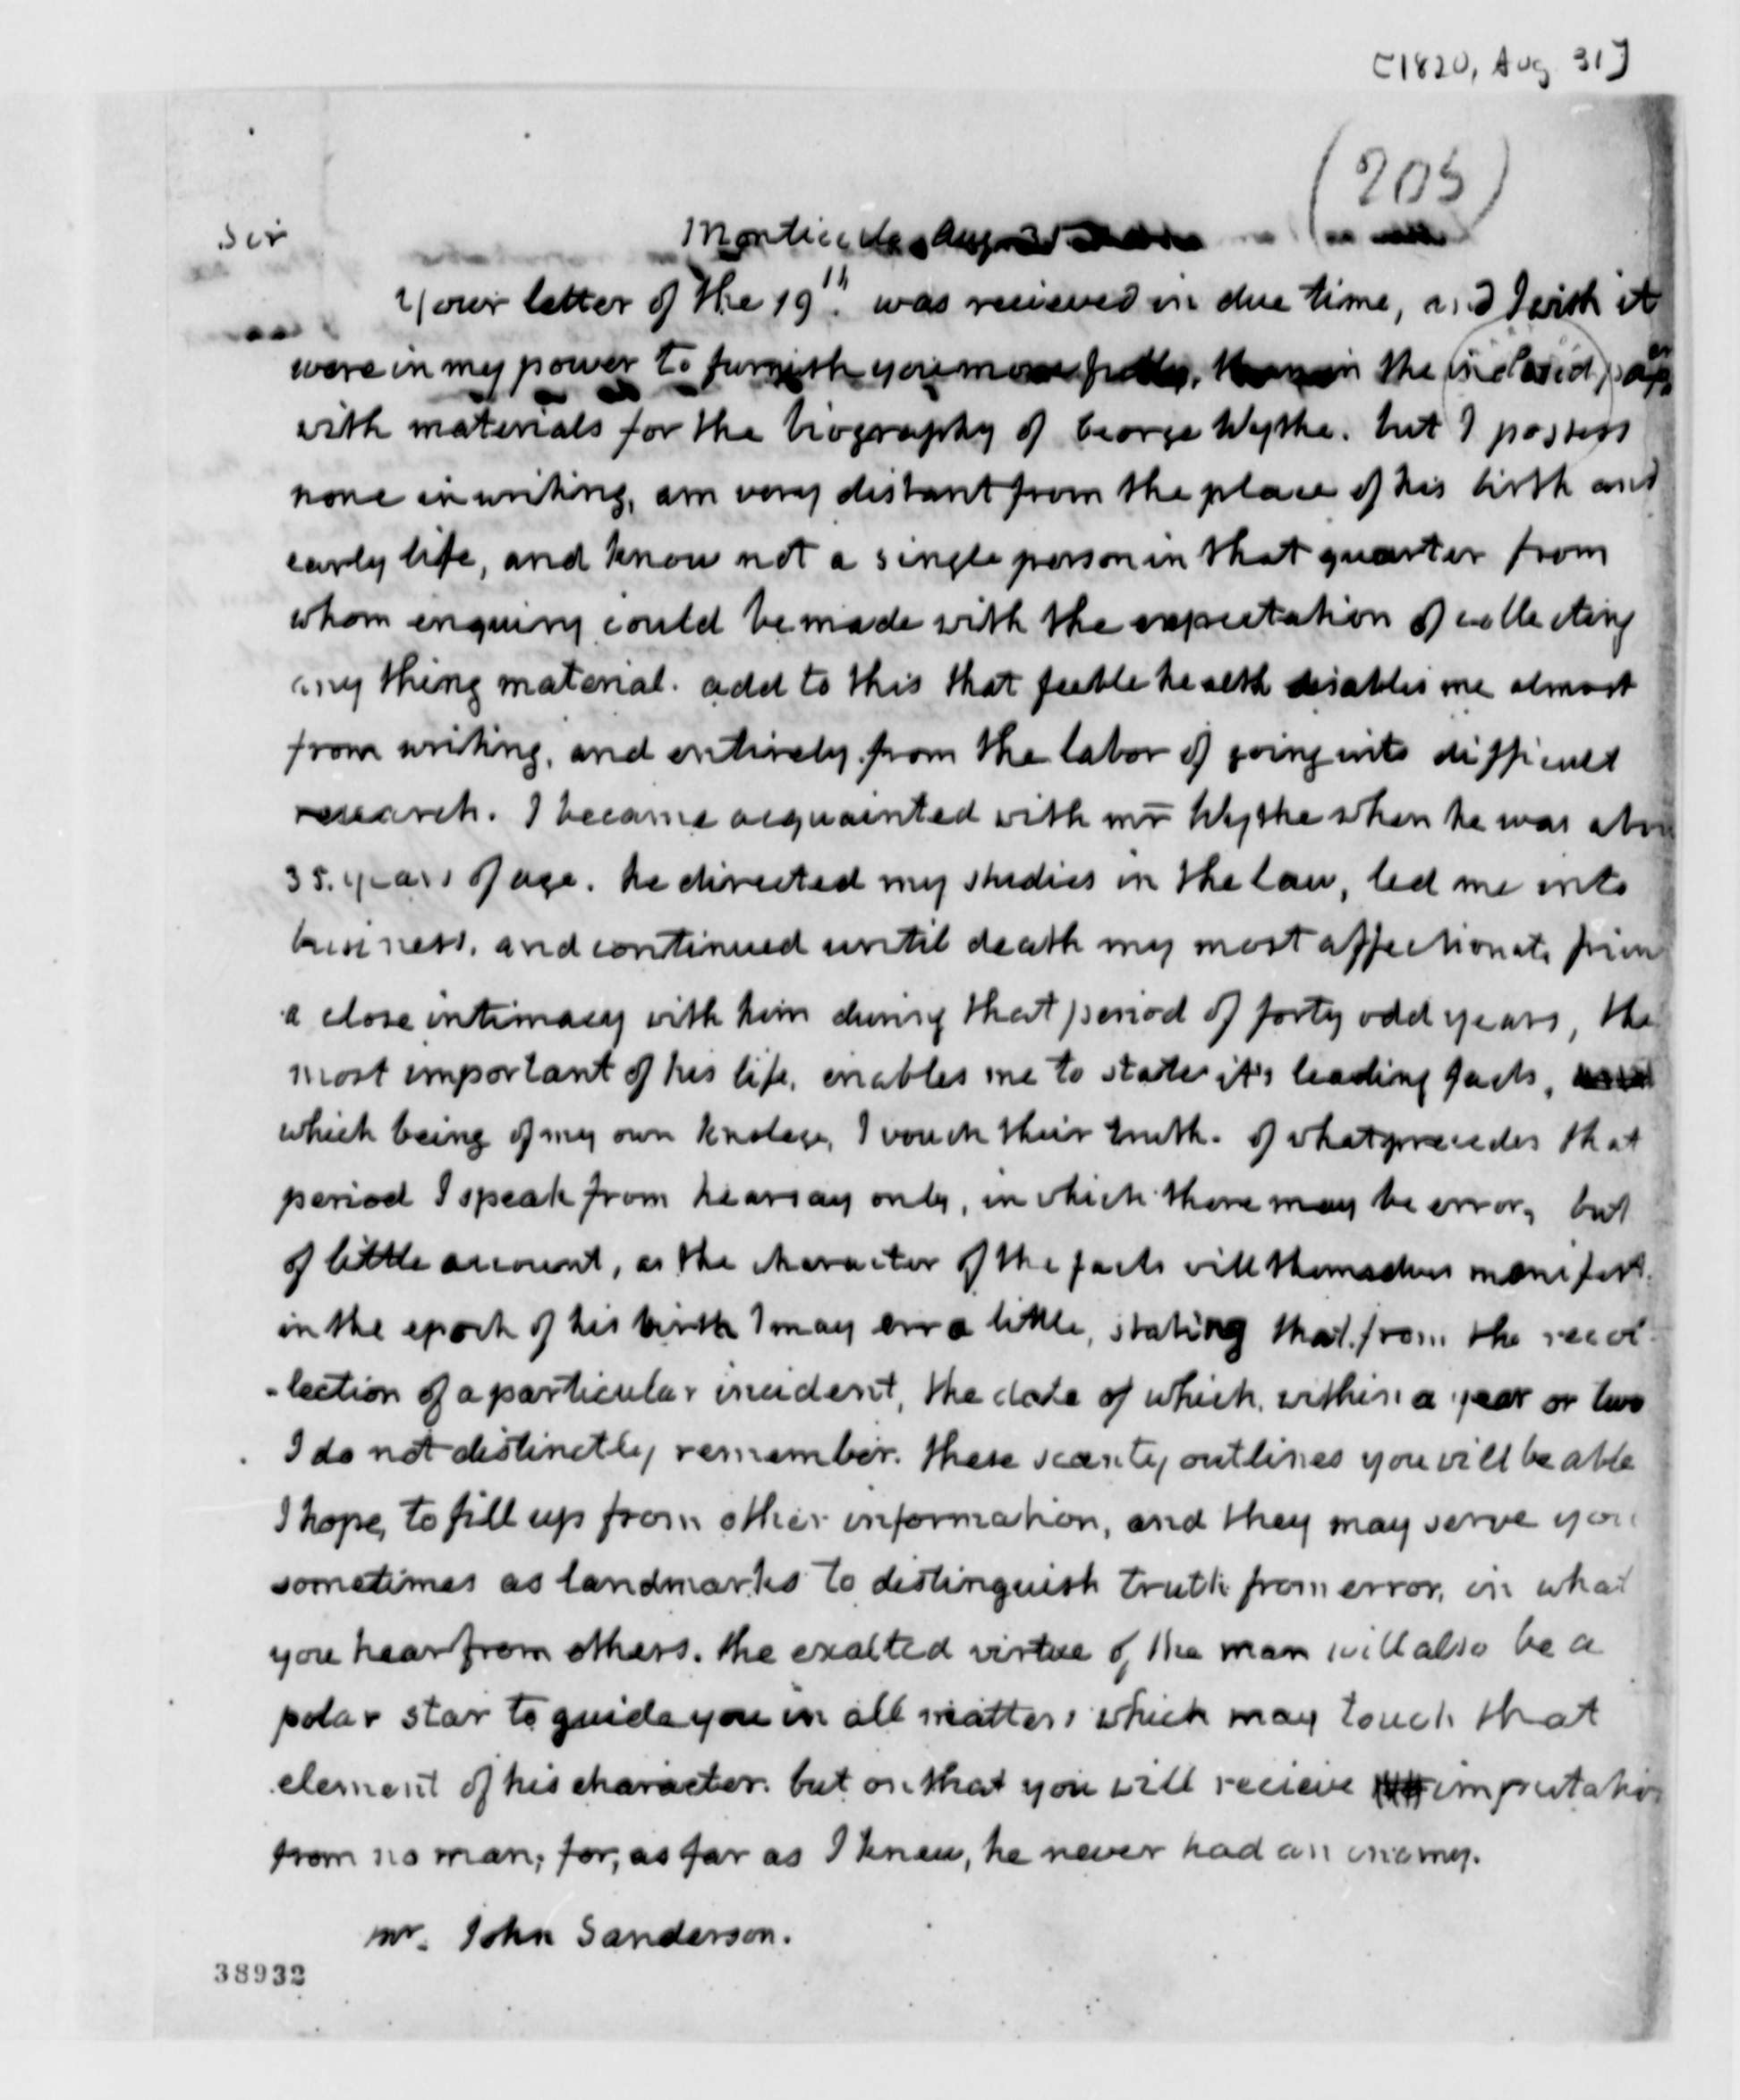 [1820, Aug 31]
(205)
Sir
Monticello Aug. 31
Your letter of the 19th. was recieved in due time, and I wish it
were in my power to furnish you more fully, than in the inclosed paper
with materials for the biography of George Wythe. but I possess
none in writing, am very distant from the place of his birth and
early life, and know not a single person in that quarter from
whom enquiry could be made with the expectation of collecting
any thing material. add to this that feeble health disables me almost
from writing, and entirely from the labor of going into difficult
research. I became acquainted with mr Wythe when he was abou
35. years of age. he directed my studies in the law, led me into
business, and continued until death my most affectionate frien
a close intimacy with him during that period of forty odd years, the
most important of his life, enables me to state it's leading facts,
which being of my own knolege, I vouch their truth. of what precedes that
period I speak from hearsay only, in which there may be error, but
of little account, as the character of the facts will themselves manifest.
in the epoch of his birth I may err a little, stating that from the recol-
-lection of a particular incident, the date of which, within a year or two
I do not distinctly remember. these scanty outlines you will be able
I hope, to fill up from other information, and they may serve you
sometimes as landmarks to distinguish truth from error, in what
you hear from others. the exalted virtue of the man will also be a
polar star to guide you in all matters which may touch that
element of his character. but on that you will recieve imputation
from no man; for, as far as I know, he never had an enemy.
mr. John Sanderson.
38932